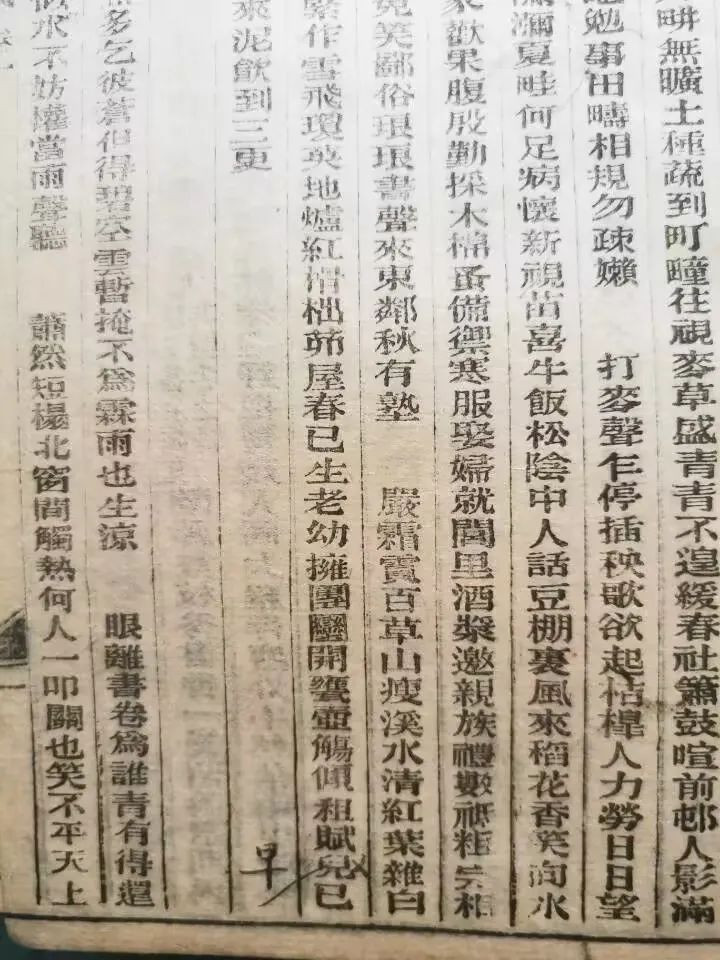 畊無曠土種蔬到町疃往視麥草盛青青不遑緩春社簫鼓喧前邨人影滿
勉事田疇相規勿疎嬾 打麥聲乍停插秧歌欲起桔槔人力勞日日望
瀰夏畦何足病懷新視苗喜牛飯松陰中人話豆棚裏風來稻花香笑向水
家歡果腹殷勤採木棉蚤備禦寒服娶婦就閭里酒漿邀親族禮數祗粗完相
免笑鄙俗琅琅書聲來東鄰秋有塾 嚴霜霣百草山瘦溪水清紅葉雜白
絮作雪飛瓊英地爐紅榾柮茆屋春已生老幼擁團圞開甕壺觴傾租賦兒已
早
來泥飲到三更
多乞彼蒼但得碧空雲暫掩不爲霖雨也生涼 眼離書卷爲誰青有得還
水不妨權當雨聲聽 蕭然短榻北窗間觸熱何人一叩關也笑不平天上